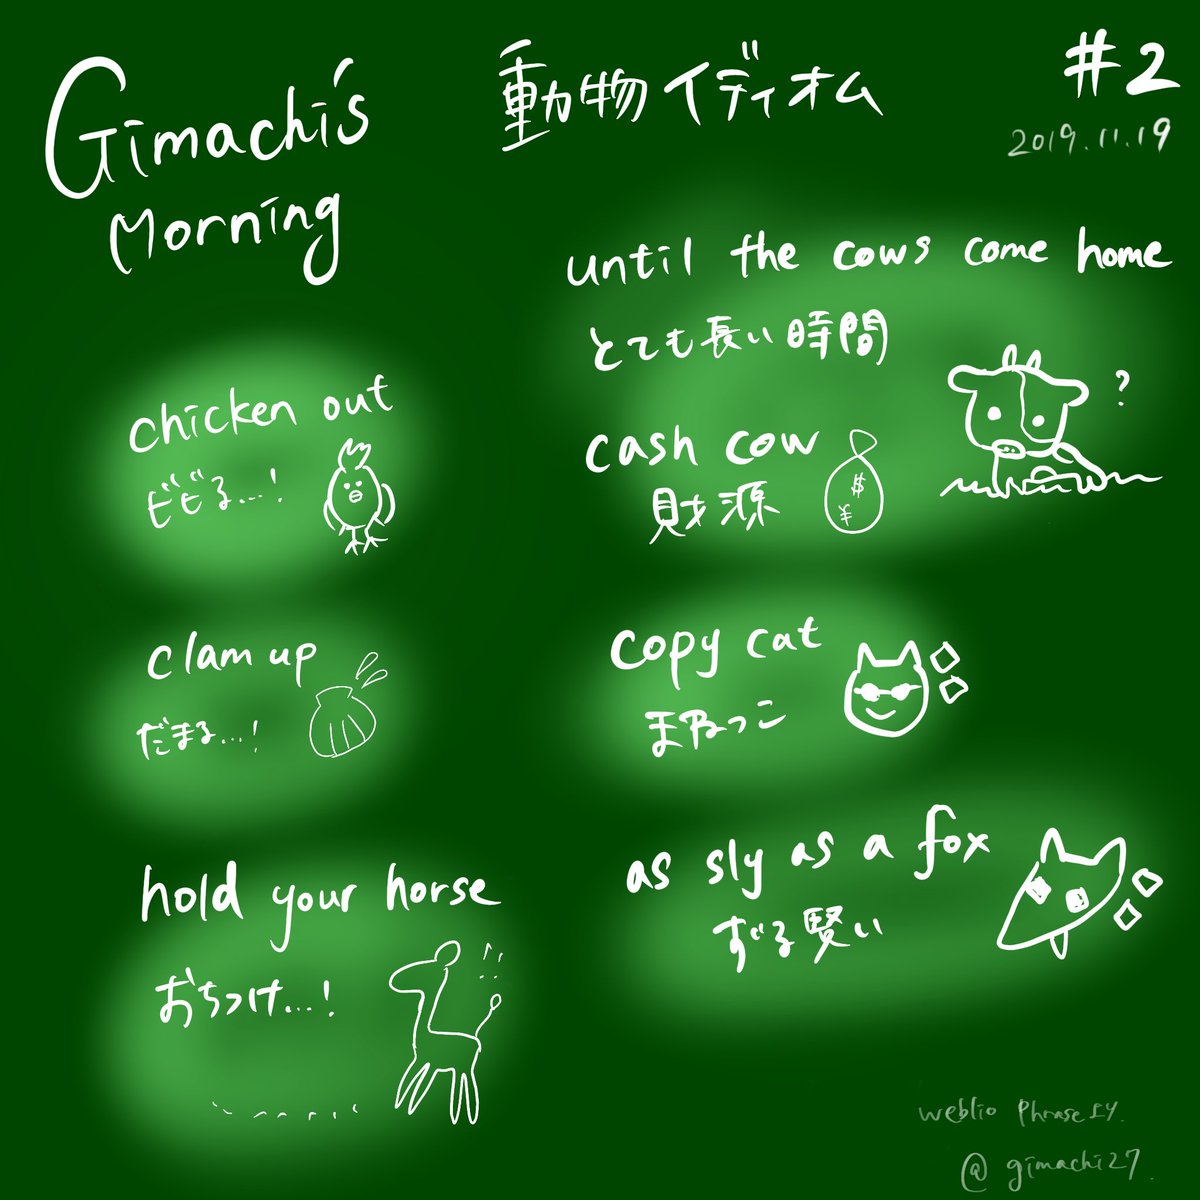 Gimachi's
Morning
動物イディオム
#2
2019.11.19
chicken out
ビビる...!
clam up
だまる...!
hold your horse
おちつけ...!
until the cows come home
とても長い時間
?
cash cow
財源
$
¥
copy cat
まねっこ
as sly as a fox
ずる賢い
weblio Phrase
@gimachi27